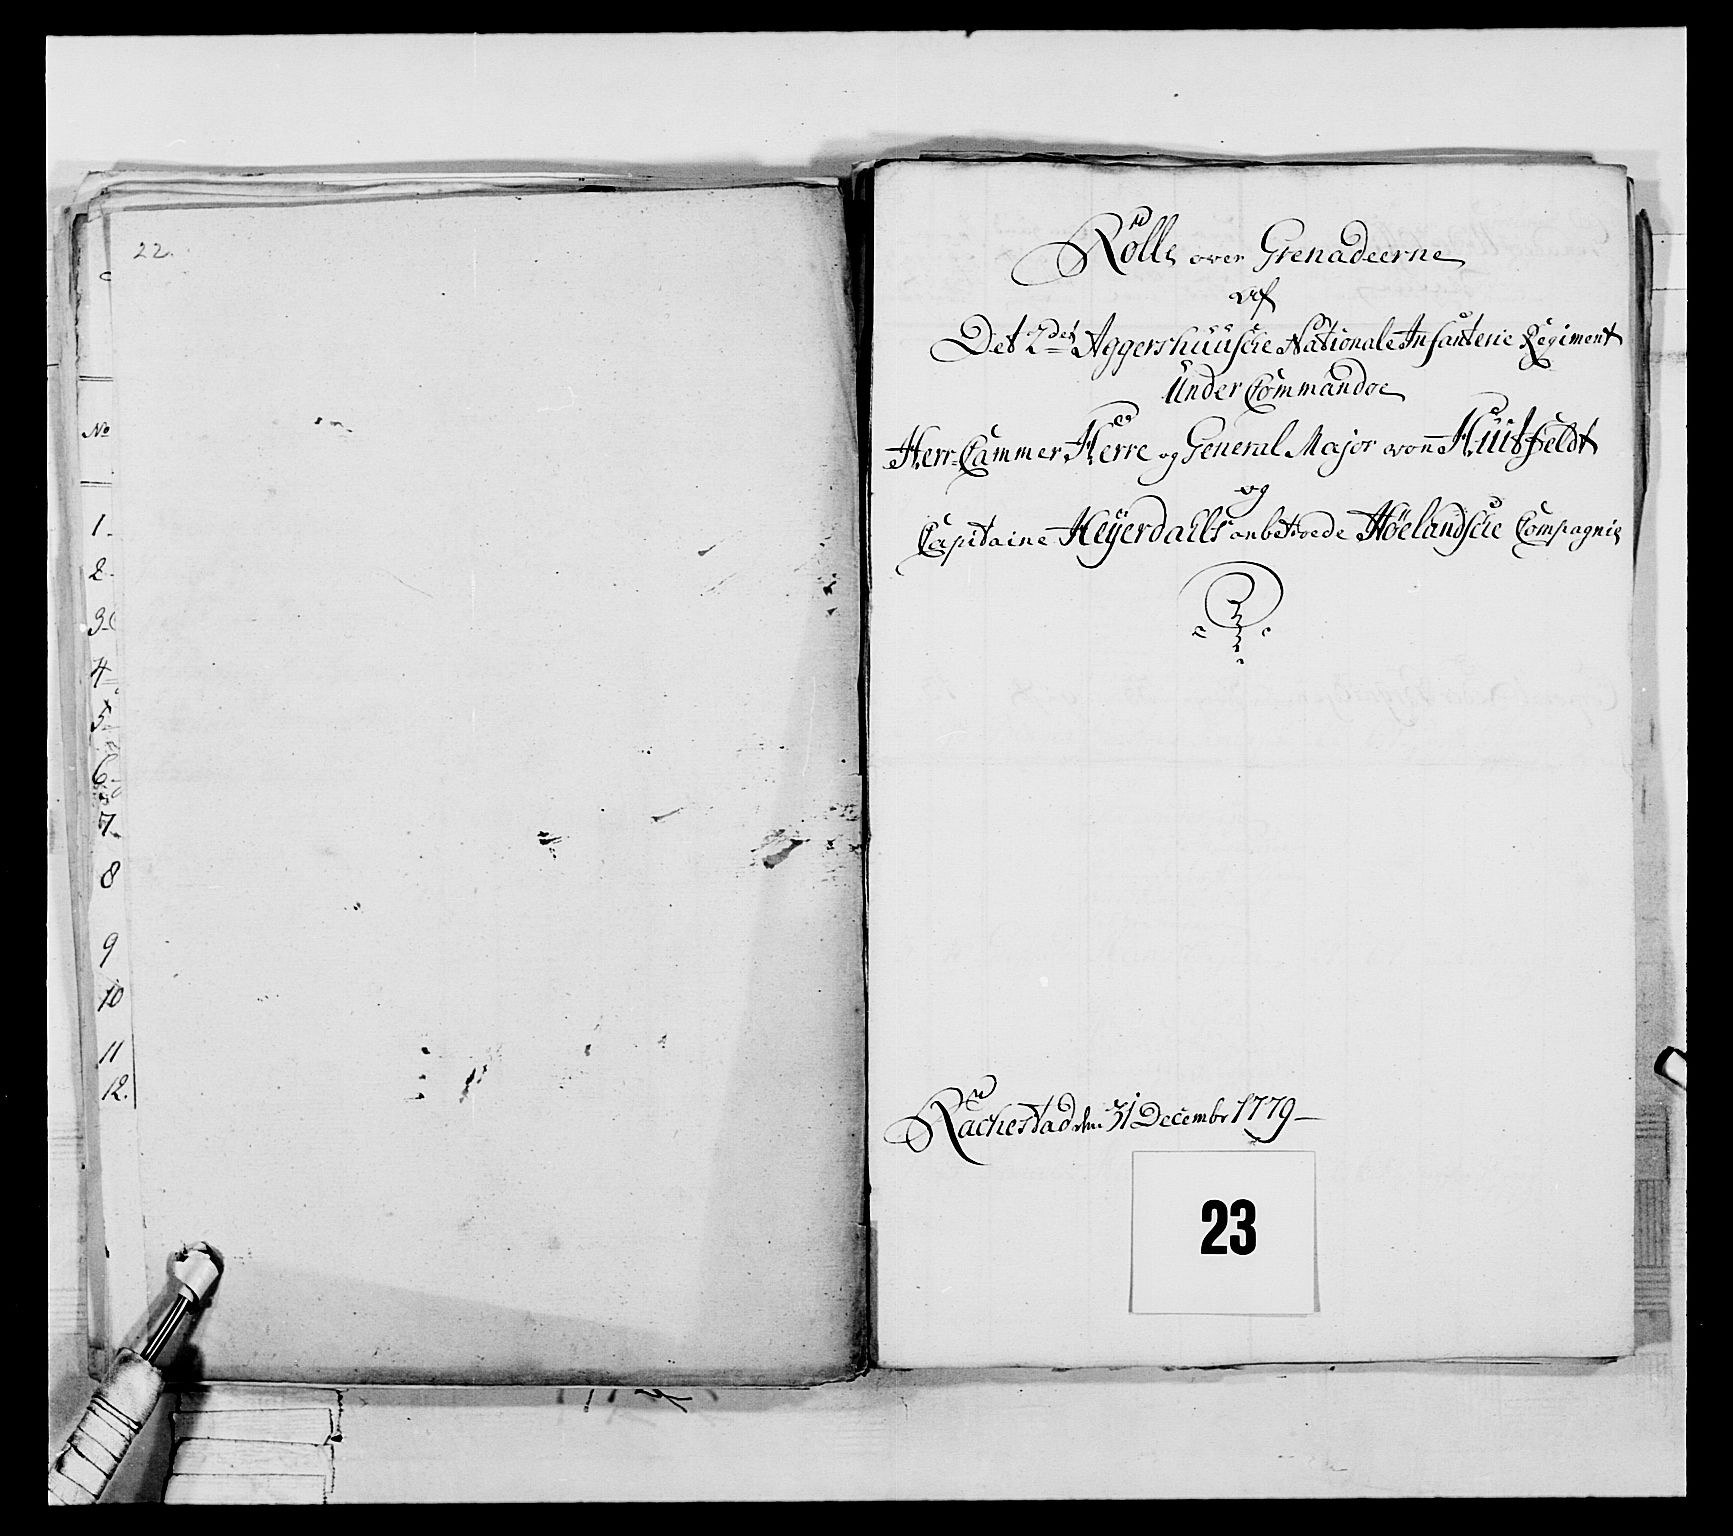 22.
No
1.
2.
3.
4
5
6.
7.
8
9
10
11
12.
Rölle over Grenadeerne
af
Det 2det Aggershuusche Nationale Infanterie Regiment
Under Commandoe
Herr Cammer Herre og General Major vonn Huitfeldt
og
Capitaine Heyerdalls anbetroede Höelandsche Compagnie
Rachestad den 31 Decembr 1779
23